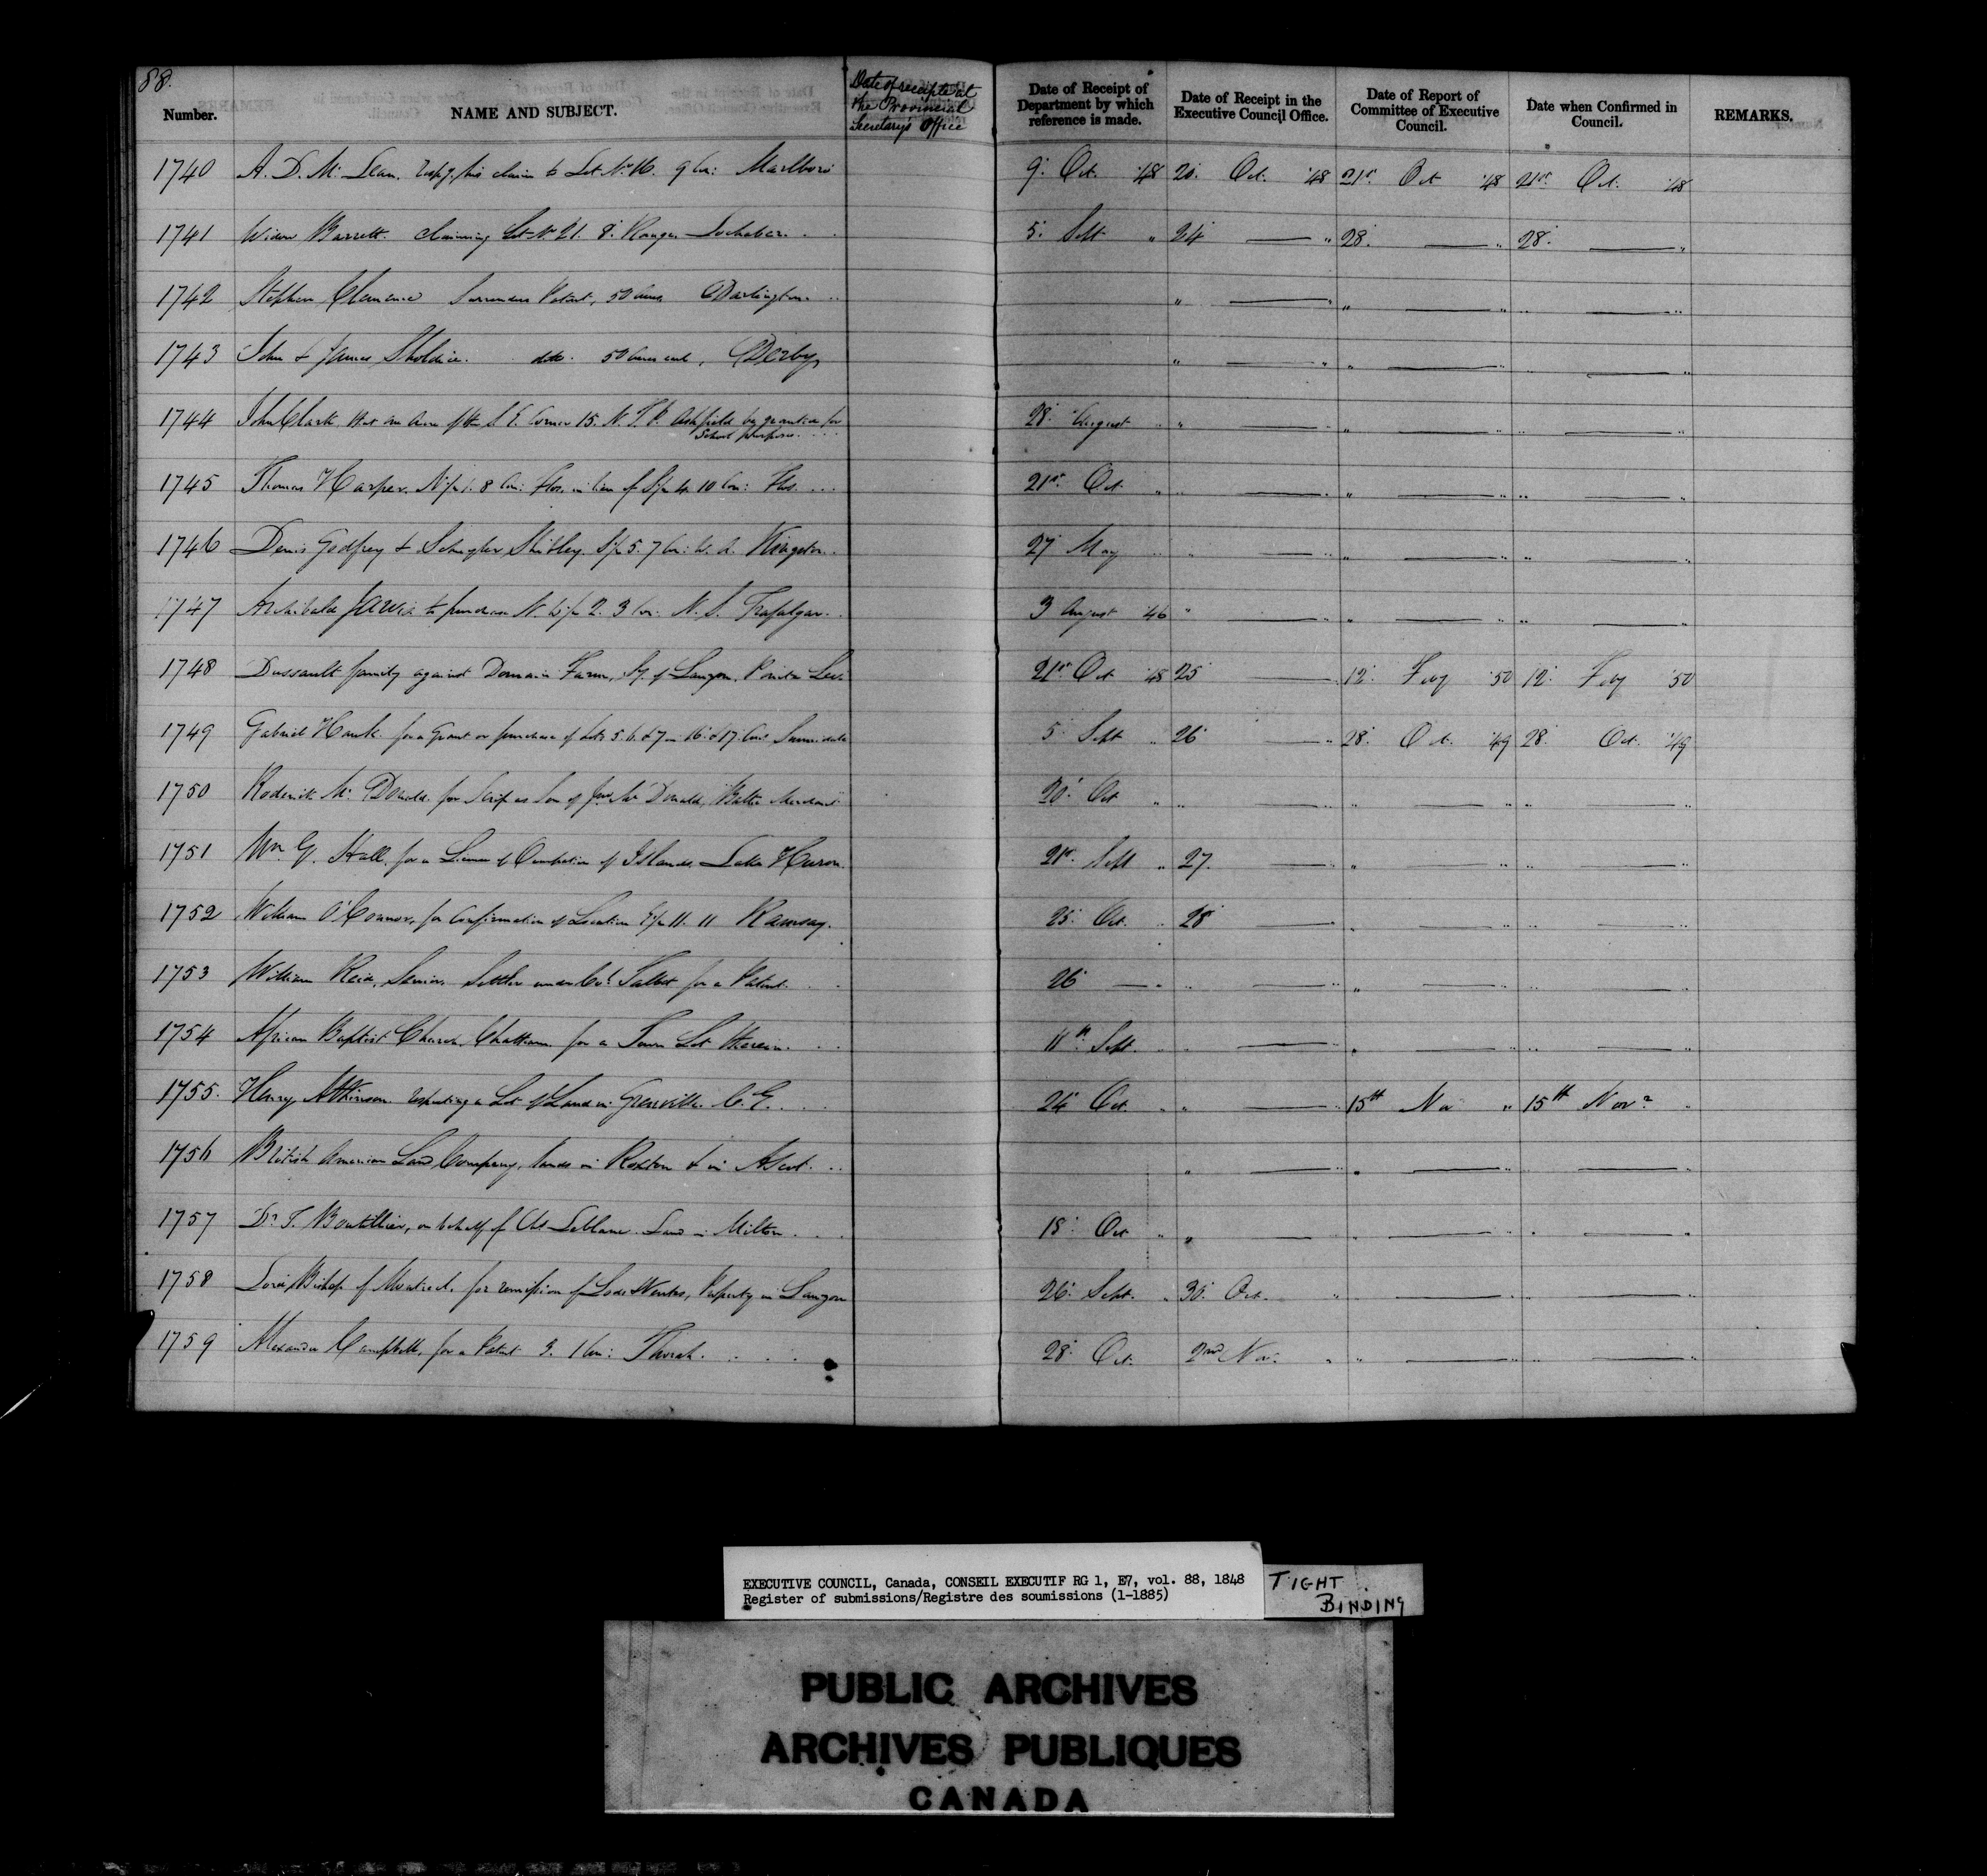 88.
Number. NAME AND SUBJECT. Date of receipts at the Provincial Secretary's Office Date of Receipt of Department by which reference is made. Date of Receipt in the Executive Council Office. Date of Report of Committee of Executive Council. Date when Confirmed in Council. REMARKS.
1740 A. D. Mc Lean. respg. his claim to Lot No. 16. 9 Con: Marlboro 9: Oct. '48 20: Oct. '48 21st. Oct '48 21st. Oct. '48
1741 Widow Barrett. claiming Lot No. 21. 8: Range Lochaber. . . 5: Sept " 24 — " 28: — " 28: — "
1742 Stephen Clemence Surrenders Patent, 50 Acres Darlington. .. " — " " — " " — "
1743 John & James Sholdice. ditto. 50 Acres each, Derby " — " " — " " — "
1744 John Clark that an Acre of the S. E. Corner 15. N. T. P. Ashfield be granted for
School purposes. . . . 28: August " " — " " — " " — "
1745 Thomas Harper. N½ 1. 8 Con: Flos, in lieu of S½ 4. 10 Con: Flos. ... 21st. Oct. " " — " " — " " — "
1746 Denis Godfrey & Schuyler Shibley. S½ 5. 7 Con: W. A. Kingston. 27 May " " — " " — " " — "
1747 Archibald Jarvis to purchase N. W½ 2. 3 Con. N. S. Trafalgar. 3 August '46 " — " " — " " — "
1748 Dussault family against Domain Farm, Sy. of Lauzon, Pointe Levi 21st Oct '48 25 — 12: Feby '50 12: Feby '50
1749 Gabriel Hauk. for a Grant or purchase of Lots 5. 6. & 7 – 16. & 17. Con: Sunnidale 5: Sept " 26 — " 28: Oct. '49 28: Oct. '49
1750 Roderick Mc Donald. for Scrip as Son of Jno. Mc Donald, 20: Oct " " — " " — " " — "
1751 Wm. G. Hall, for a License of Occupation of Islands. Lake Huron. 21st. Sept " 27. — " " — " " — "
1752 William O'Connor, for Confirmation of Location E½ 11. 11 Ramsay. 25: Oct. " 28 — " " — " " — "
1753 William Reid, Senior. Settler under Col. Talbot for a Patent. . . 26 — " " — " " — " " — "
1754 African Baptist Church, Chatham for a Town Lot therein. . . 11th. Sept. " " — " " — " " — "
1755. Henry Atkinson. respecting a Lot of Land in Grenville. C. E. . . 24 Oct. " " — " 15th Nov " 15th Novr "
1756 British American Land Company, lands in Roxton & in Ascot. .. " — " " — " " — "
1757 Dr. T. Boutillier, on behalf of Chs Leblanc. Land in Milton. . . . 18: Oct " " — " " — " " — "
1758 Lord Bishop of Montreal. for remission of Lods & Ventes, Property in Lauzon 26: Sept. " 30: Oct. " " — " " — "
1759 Alexander Campbell, for a Patent 3. 1 Con: Thorah. . . . . 28: Oct. 2nd Nov: " " — " " — "
EXECUTIVE COUNCIL, Canada, CONSEIL EXECUTIF RG 1, E7, vol. 88, 1848
Register of submissions/Registre des soumissions (1-1885)
TIGHT
BINDING
PUBLIC ARCHIVES
ARCHIVES PUBLIQUES
CANADA